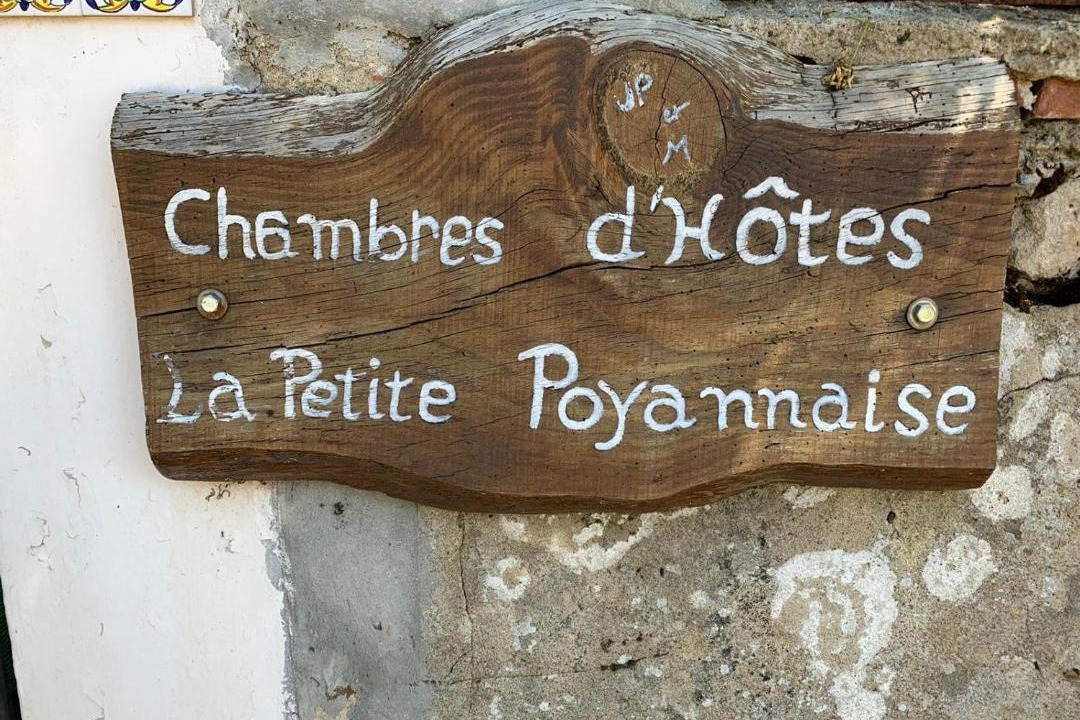 JP
et
M
Chambres d'Hôtes
La Petite Poyannaise